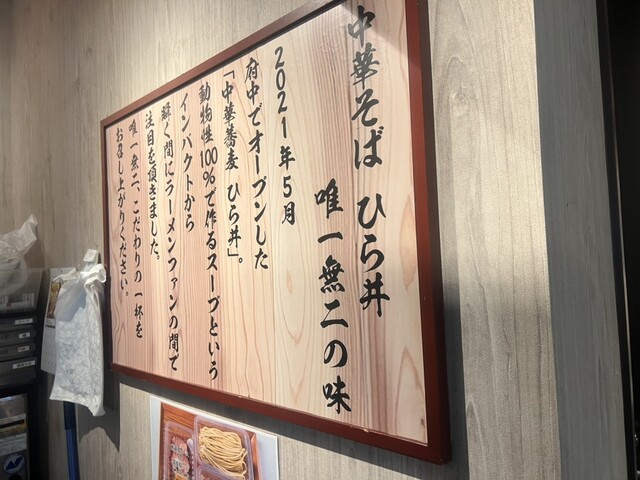 中華そば ひら井
唯一無二の味
2021年5月
府中でオープンした
「中華蕎麦 ひら井」。
動物性100%で作るスープという
インパクトから
瞬く間にラーメンファンの間で
注目を頂きました。
唯一無二、こだわりの一杯を
お召し上がりください。